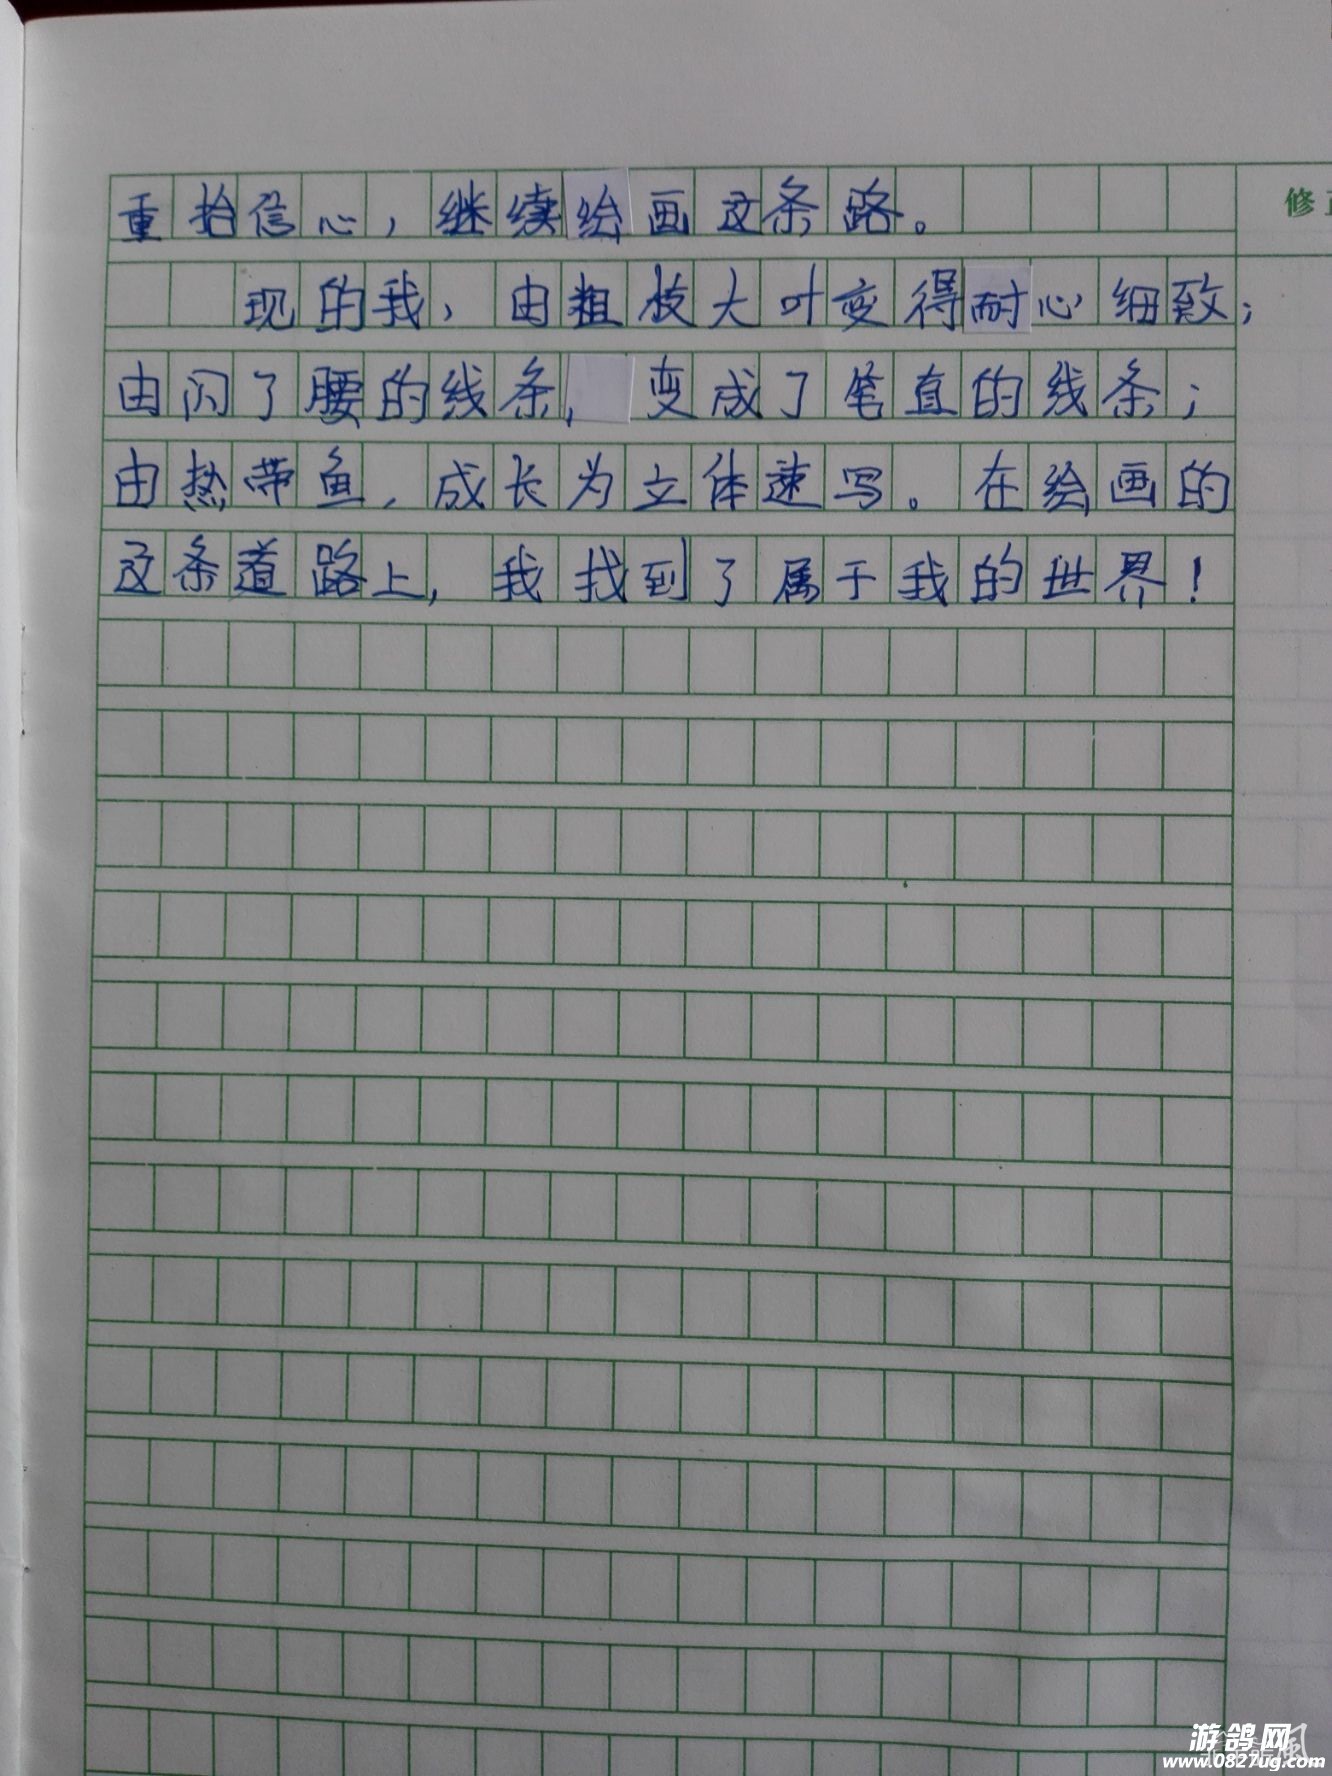 重拾信心，继续绘画这条路。
修
现的我，由粗枝大叶变得耐心细致；
由闪了腰的线条，变成了笔直的线条；
由热带鱼，成长为立体速写。在绘画的
这条道路上，我找到了属于我的世界！
游鸽网
www.0827ug.com